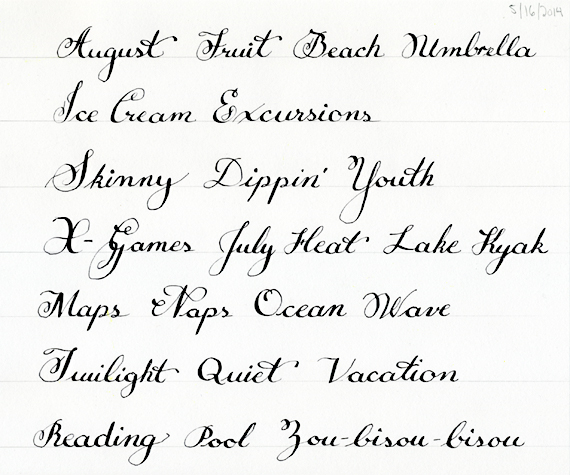 5/16/2014
August Fruit Beach Umbrella
Ice Cream Excursions
Skinny Dippin' Youth
X-Games July Heat Lake Kyak
Maps Naps Ocean Wave
Twilight Quiet Vacation
Reading Pool Zou-bisou-bisou